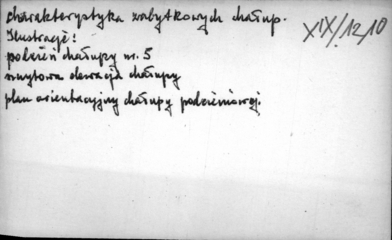 charakterystyka zabytkowych chałup.
XIX/12,10
Ilustracje:
podzień chałupy nr. 5
szczytowa elewacja chałupy
plan orientacyjny chałupy podzieniowej.